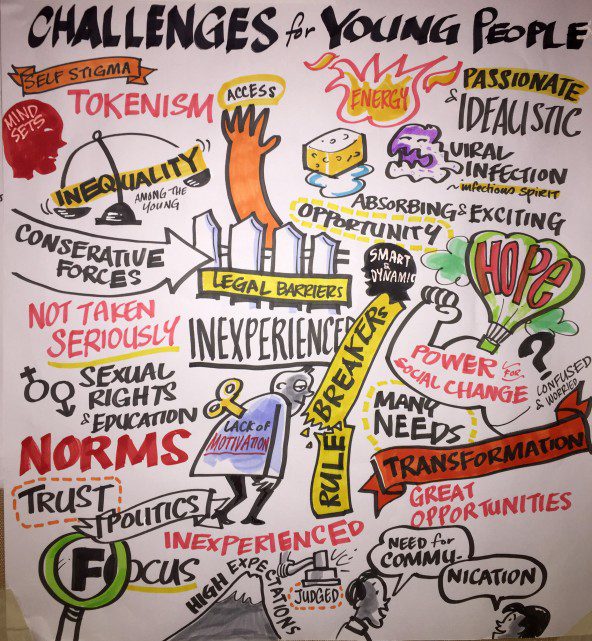 CHALLENGES for YOUNG PEOPLE
SELF STIGMA
MIND
SETS
TOKENISM
ACCESS
ENERGY
PASSIONATE
& IDEALISTIC
INEQUALITY
AMONG THE
YOUNG
VIRAL
INFECTION
~ infectious spirit
ABSORBING & EXCITING
OPPORTUNITY
CONSERATIVE
FORCES
LEGAL BARRIERS
SMART
&
DYNAMIC
HOPE
NOT TAKEN
SERIOUSLY
INEXPERIENCED
RULE BREAKERS
POWER FOR
SOCIAL CHANGE
?
CONFUSED
& WORRIED
SEXUAL
RIGHTS
& EDUCATION
LACK OF
MOTIVATION
MANY
NEEDS
NORMS
TRANSFORMATION
GREAT
OPPORTUNITIES
TRUST
POLITICS
INEXPERIENCED
FOCUS
HIGH EXPECTATIONS
JUDGED
NEED for
COMMU-
NICATION